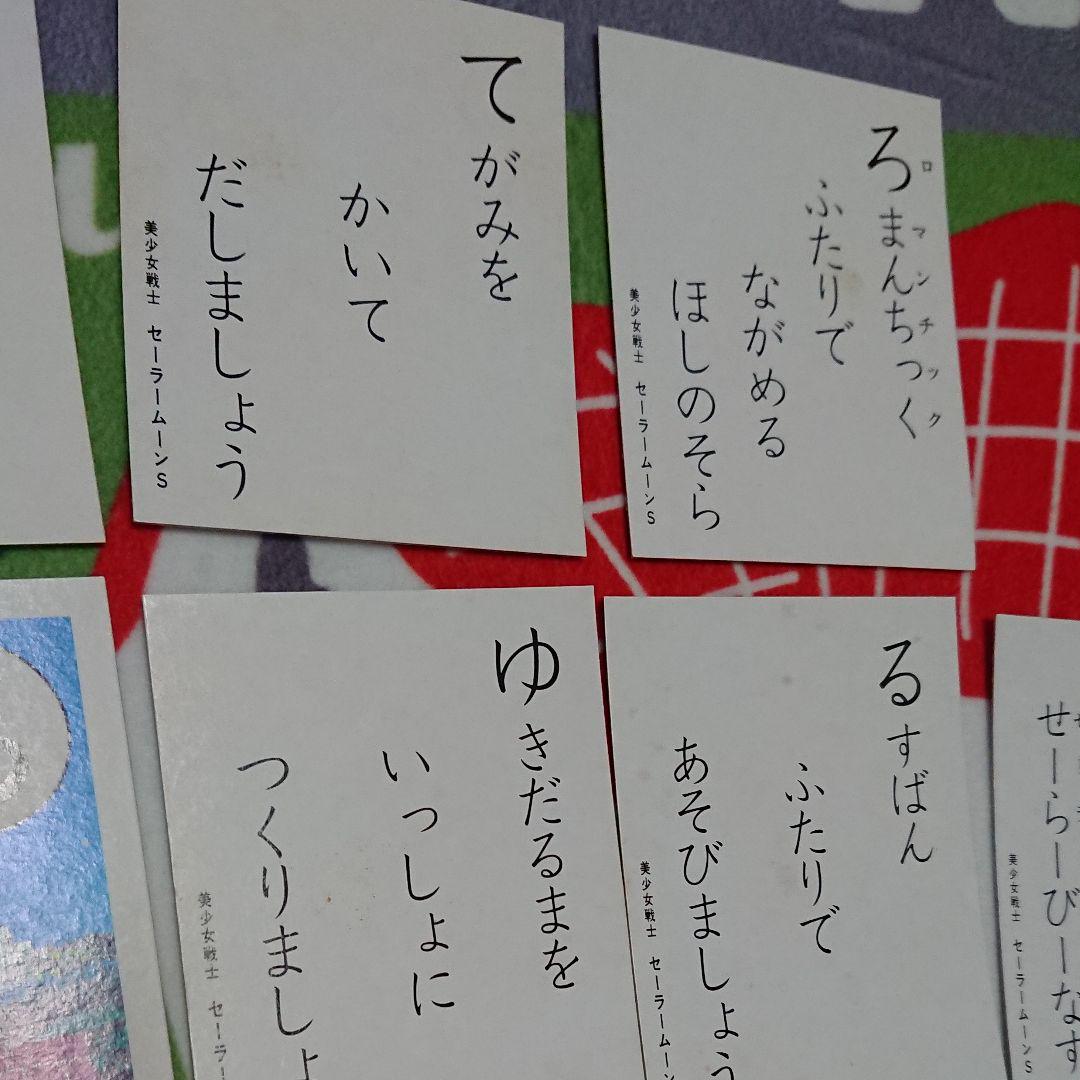 てがみを
かいて
だしましょう
美少女戦士 セーラームーンS
ろまんちっく
ロマンチック
ふたりで
ながめる
ほしのそら
美少女戦士 セーラームーンS
ゆきだるまを
いっしょに
つくりましょ
美少女戦士 セーラ
るすばん
ふたりで
あそびましょう
美少女戦士 セーラームーン
せーらーびーなす
美少女戦士 セーラームーンS